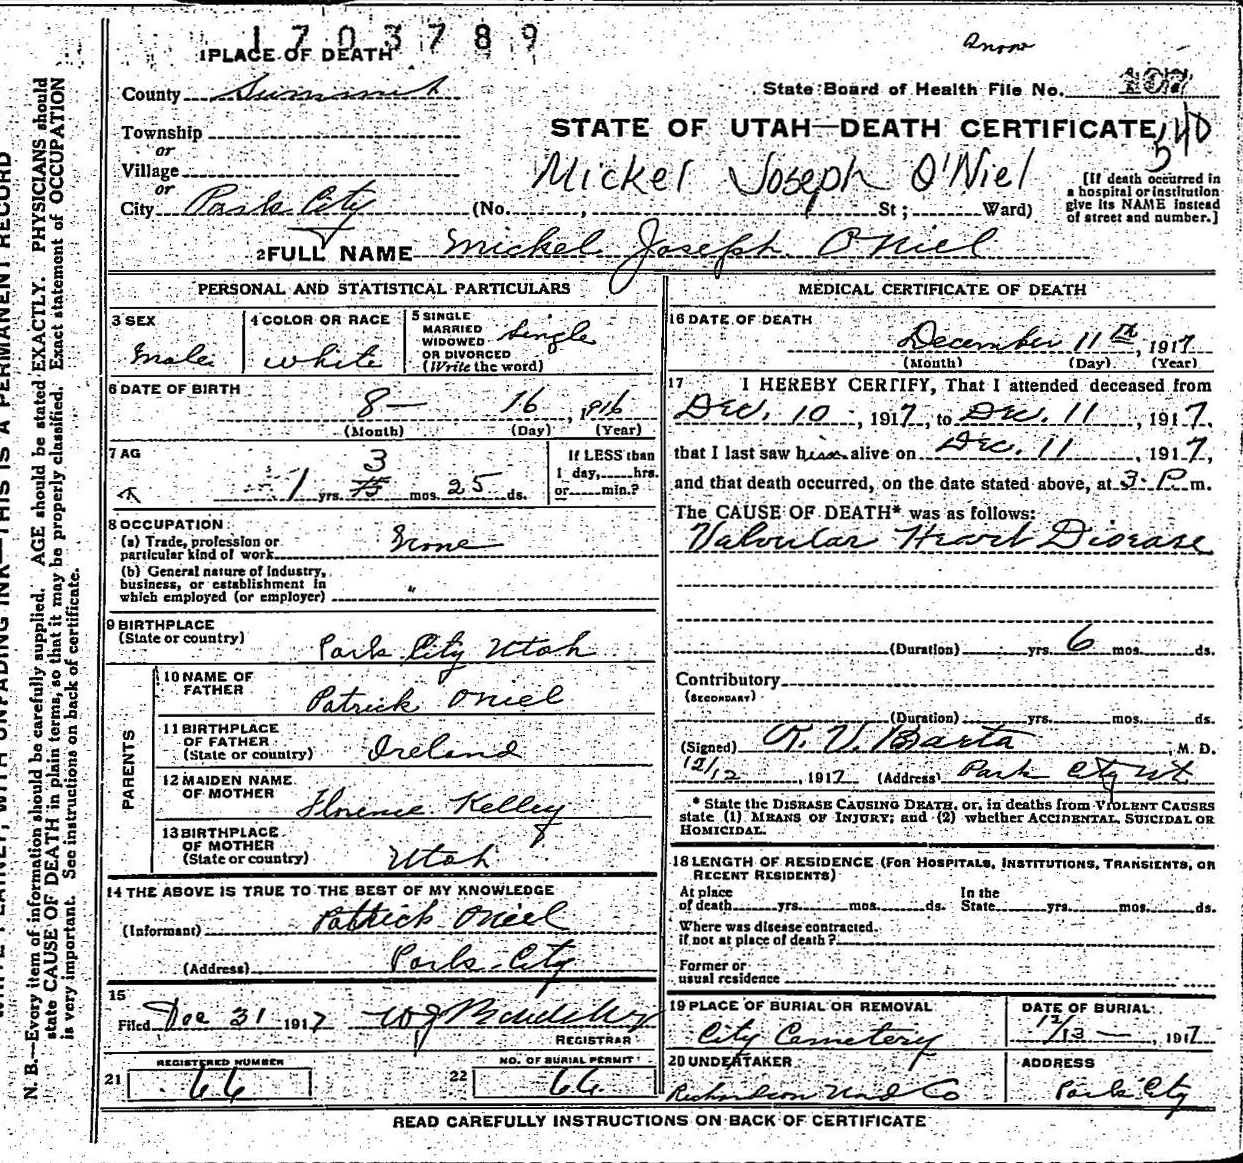 1703789
1 PLACE OF DEATH
County Summit
State Board of Health File No. 107
Township
or
Village
or
City Park City (No. , St ; Ward)
STATE OF UTAH—DEATH CERTIFICATE
540
Mickel Joseph O'Niel
[If death occurred in
a hospital or institution
give its NAME instead
of street and number.]
2 FULL NAME Mickel Joseph O'Niel
PERSONAL AND STATISTICAL PARTICULARS
3 SEX
Male
4 COLOR OR RACE
white
5 SINGLE
MARRIED
WIDOWED
OR DIVORCED
(Write the word)
Single
6 DATE OF BIRTH
8— 16, 916
(Month) (Day) (Year)
7 AG
1 yrs. 3 mos. 25 ds.
If LESS than
1 day, hrs.
or min.?
8 OCCUPATION
(a) Trade, profession or
particular kind of work None
(b) General nature of Industry,
business, or establishment in
which employed (or employer) "
9 BIRTHPLACE
(State or country)
Park City Utah
PARENTS
10 NAME OF
FATHER
Patrick Oniel
11 BIRTHPLACE
OF FATHER
(State or country)
Ireland
12 MAIDEN NAME
OF MOTHER
Florence Kelley
13 BIRTHPLACE
OF MOTHER
(State or country)
Utah
14 THE ABOVE IS TRUE TO THE BEST OF MY KNOWLEDGE
(Informant) Patrick Oniel
(Address) Park City
15
Filed Dec 31 1917
REGISTRAR
REGISTERED NUMBER
21 66
NO. OF BURIAL PERMIT
22 66
MEDICAL CERTIFICATE OF DEATH
16 DATE OF DEATH
December 11th, 1917
(Month) (Day) (Year)
17 I HEREBY CERTIFY, That I attended deceased from
Dec. 10, 1917, to Dec. 11, 1917,
that I last saw him alive on Dec. 11, 1917,
and that death occurred, on the date stated above, at 3 P. m.
The CAUSE OF DEATH* was as follows:
Valvular Heart Disease
(Duration) yrs. 6 mos. ds.
Contributory
(SECONDARY)
(Duration) yrs. mos. ds.
(Signed) R. V. Barta, M. D.
12/12, 1917 (Address) Park City Ut
* State the DISEASE CAUSING DEATH, or, in deaths from VIOLENT CAUSES
state (1) MEANS OF INJURY; and (2) whether ACCIDENTAL, SUICIDAL OR
HOMICIDAL.
18 LENGTH OF RESIDENCE (FOR HOSPITALS, INSTITUTIONS, TRANSIENTS, OR
RECENT RESIDENTS)
At place
of death yrs. mos. ds.
In the
State yrs. mos. ds.
Where was disease contracted.
if not at place of death?
Former or
usual residence
19 PLACE OF BURIAL OR REMOVAL
City Cemetery
DATE OF BURIAL
12/13—, 1917
20 UNDERTAKER
Richardson Und Co
ADDRESS
Park City
READ CAREFULLY INSTRUCTIONS ON BACK OF CERTIFICATE
N. B.—Every item of information should be carefully supplied. AGE should be stated EXACTLY. PHYSICIANS should
state CAUSE OF DEATH in plain terms, so that it may be properly classified. Exact statement of OCCUPATION
is very important. See instructions on back of certificate.